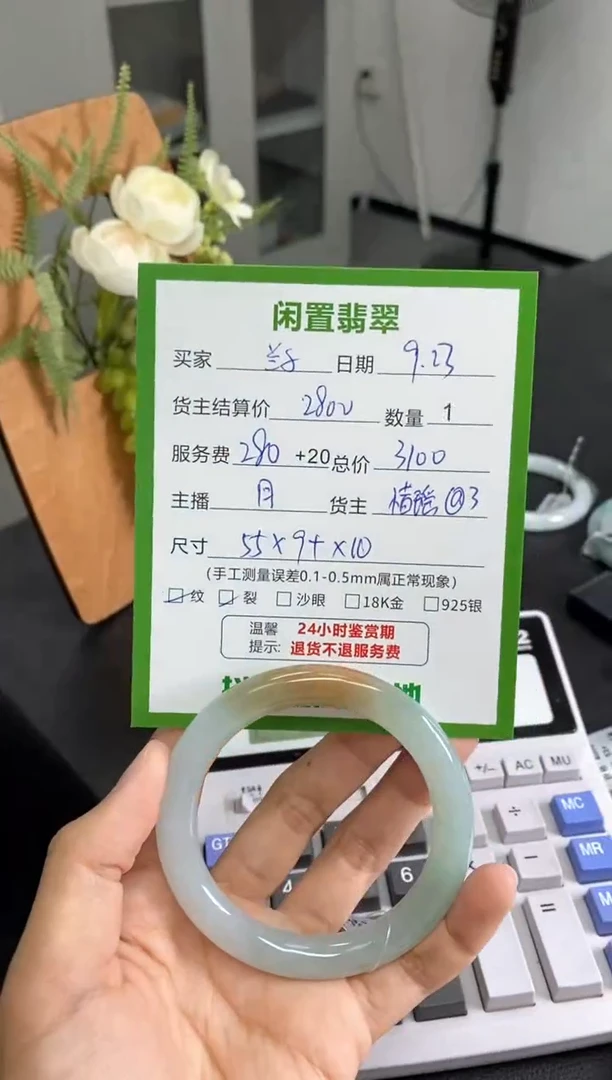 闲置翡翠
买家 兰子 日期 9.23
货主结算价 2800 数量 1
服务费 280 +20 总价 3100
主播 月 货主 @3
尺寸 55×9+×10
(手工测量误差0.1-0.5mm属正常现象)
纹 裂 沙眼 18K金 925银
温馨 24小时鉴赏期
提示: 退货不退服务费
+/− AC MU
GT ÷ MC
6 − MR
=